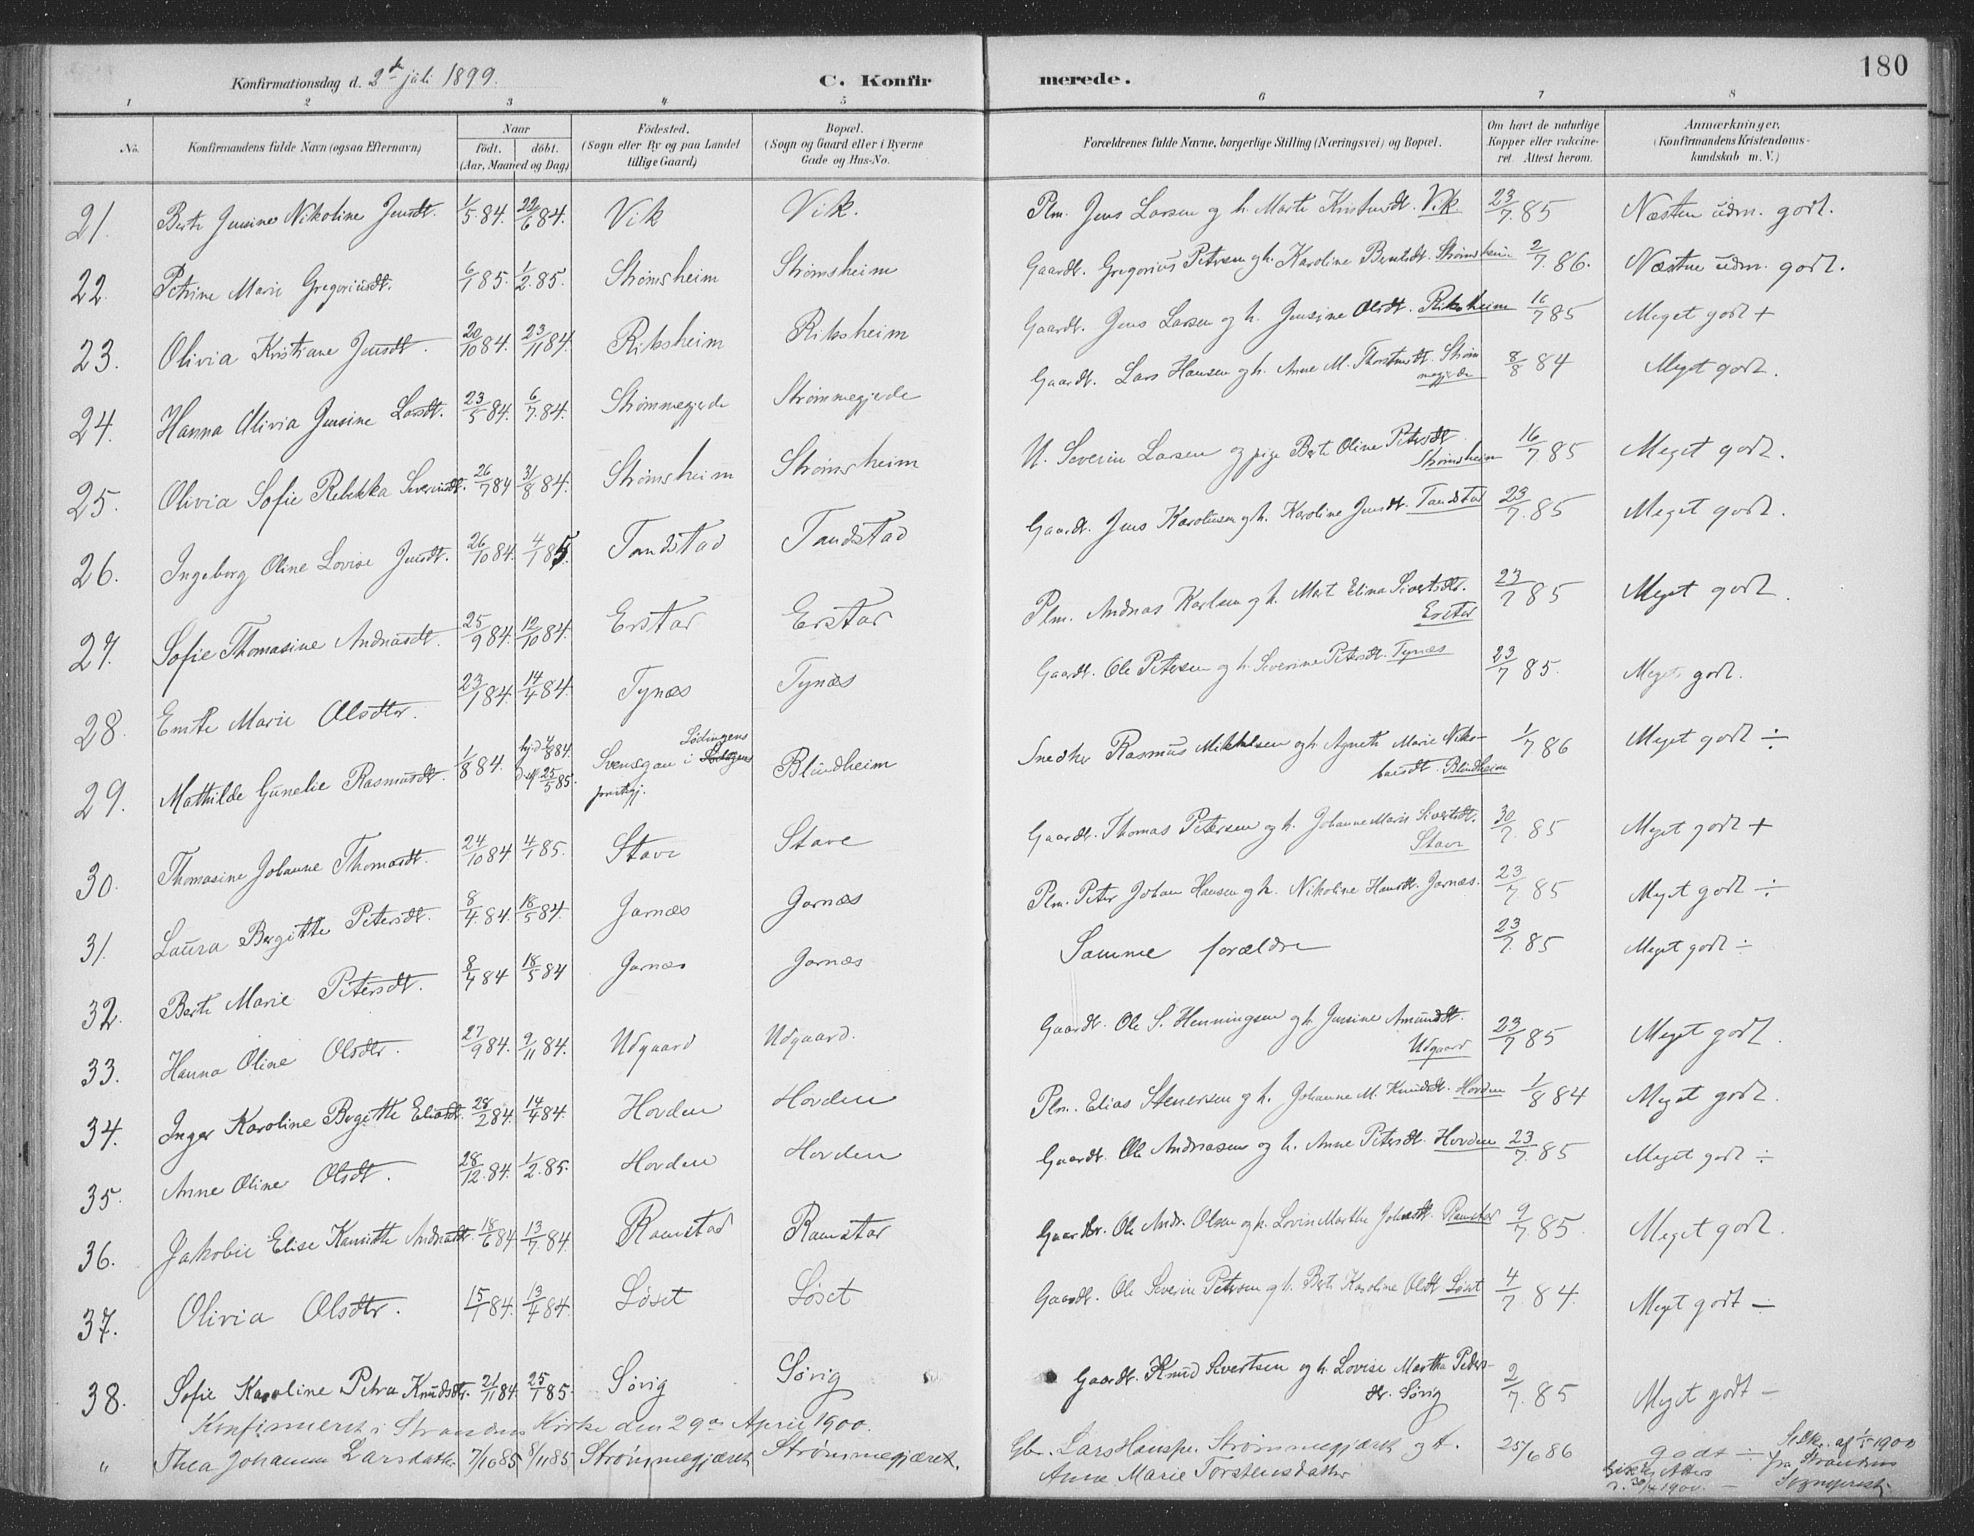 180
Konfirmationsdag d. 2den juli 1899. C. Konfirmerede.
1 2 3 4 5 6 7 8
No. Konfirmandens fulde Navn (ogsaa Efternavn) Naar født. døbt. (Aar, Maaned og Dag) Fødested. (Sogn eller By og paa Landet tillige Gaard) Bopæl. (Sogn og Gaard eller i Byerne Gade og Hus-No. Forældrenes fulde Navne, borgerlige Stilling (Næringsvei) og Bopæl. Om havt de naturlige Kopper eller vakcineret. Attest herom. Anmærkninger. (Konfirmandens Kristendomskundskab m. V.)
21. Berte Jensine Nikoline Jensdt. 1/5 84. 22/6 84. Vik Vik. Plm. Jens Larsen og h. Marte Kristensdt. Vik 23/7 85 Næsten udm. godt.
22. Petrine Marie Gregoriusdt. 6/1 85. 1/2 85. Strømsheim Strømsheim Gaardt. Gregorius Petersen og h. Karoline Berntsdt. Strømsheim 2/7 86. Næsten udm. godt.
23. Olivia Kristiane Jensdt. 20/10 84. 23/11 84. Riksheim Riksheim Gaardt. Jens Larsen og h. Jensine Olsdt. Riksheim 16/7 85 Meget godt +
24. Hanna Olivia Jensine Larsdt. 23/5 84. 6/7 84. Strømmegjerde Strømmegjerde Gaardt. Lars Hansen og h. Anne M. Thorstensdt. Strømmegjerde 8/8 84 Meget godt.
25. Olivia Sofie Rebekka Severinsdt. 26/7 84 31/8 84. Strømsheim Strømsheim U. Severin Larsen og pige Bert Oline Petersdt. Strømsheim 16/7 85 Meget godt.
26. Ingeborg Oline Lovise Jensdt. 26/10 84. 4/1 85. Tandstad Tandstad Gaardt. Jens Karolusen og h. Karoline Jensdt. Tandstad 23/7 85 Meget godt.
27. Sofie Thomasine Andreasdt. 25/9 84. 12/10 84. Erstad Erstad Plm. Andreas Karlsen og h. Mart Elina Sivertsdtr. Erstad 23/7 85 Meget godt.
28. Emte Marie Olsdtr. 23/1 84. 14/4 84. Tynæs Tynæs Gaardt. Ole Petersen og h. Severine Petersdt. Tynæs 23/7 85. Meget godt.
29. Mathilde Gunelie Rasmusdt. 1/8 84. hjd 4/8 84 25/5 85. Svensgau i Lødingens prestegj. Blindheim Snedker Rasmus Mikkelsen og h. Agnethe Marie Nikolaisdt. Blindheim 1/7 86 Meget godt ÷
30. Thomasine Johanne Thomasdt. 24/10 84 4/1 85. Stave Stave Gaardt. Thomas Petersen og h. Johanne Marie Sivertsdt. Stave 30/7 85 Meget godt +
31. Laura Bergitte Petersdt. 8/4 84. 18/5 84. Garnæs Garnæs Plm. Peter Johan Hansen og h. Nikoline Hansdt. Garnæs. 23/7 85 Meget godt ÷
32. Berte Marie Petersdt. 8/4 84 18/5 84 Garnæs Garnæs Samme forældre 23/7 85 Meget godt ÷
33. Hanna Oline Olsdtr. 27/9 84. 9/11 84. Udgaard Udgaard. Gaardt. Ole S. Henningsen og h. Jensine Amundsdt. Udgaard 23/7 85 Meget godt.
34. Inger Karoline Bergitte Eliasdt. 28/2 84. 14/4 84. Hovden Hovden Plm. Elias Stenersen og h. Johanne M. Knudsdt. Hovden 1/8 84 Meget godt.
35. Anne Oline Olsdt. 28/12 84. 1/2 85. Hovden Hovden Gaardt. Ole Andreasen og h. Anne Petersdt. Hovden 23/7 85 Meget godt ÷
36. Jakobie Elise 18/6 84 13/7 84. Ramstad Ramstad Gaardbr. Ole Andr. Olsen og h. Lovin Marthe Johnsdt. Ramstad 9/7 85. Meget godt.
37. Olivia Olsdtr. 15/1 84. 13/4 84 Løset Løset Gaardt. Ole Severin Petersen og h. Berte Karoline Olsdt Løset 4/7 84. Meget godt ÷
38. Sofie Karoline Petra Knudsdtr. 21/11 84. 25/1 85. Søvig Søvig Gaardt. Knud Sivertsen og h. Lovise Martha Pedersdtr. Søvig 2/7 85 Meget godt –
Konfirmeret i Strandens Kirke den 29de April 1900.
" Thea Johanna Larsdatter 7/10 85 8/11 85 Strømmegjæret Strømmegjæret. Gbr. Lars Hansen Strømmegjæret og h. Anne Marie Torstensdatter 25/6 86 godt ÷ af 1/5 1900 fra Strandens Sogneprest.
30/4 1900.